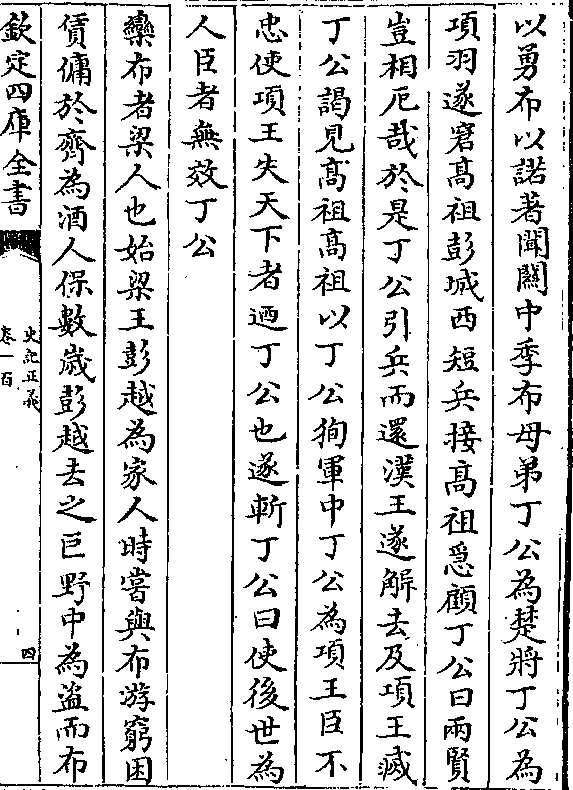 以勇布以諾著聞關中季布母弟丁公為楚將丁公為
項羽逐窘髙祖彭城西短兵接髙祖急顧丁公曰兩賢
豈相厄哉於是丁公引兵而還漢王遂解去及項王滅
丁公謁見髙祖髙祖以丁公狥軍中丁公為項王臣不
忠使項王失天下者廼丁公也遂斬丁公曰使後世為
人臣者無效丁公
欒布者梁人也始梁王彭越為家人時嘗與布游窮困
賃傭於齊為酒人保數歲彭越去之巨野中為盜而布
欽定四庫全書
史記正義
卷一百
四